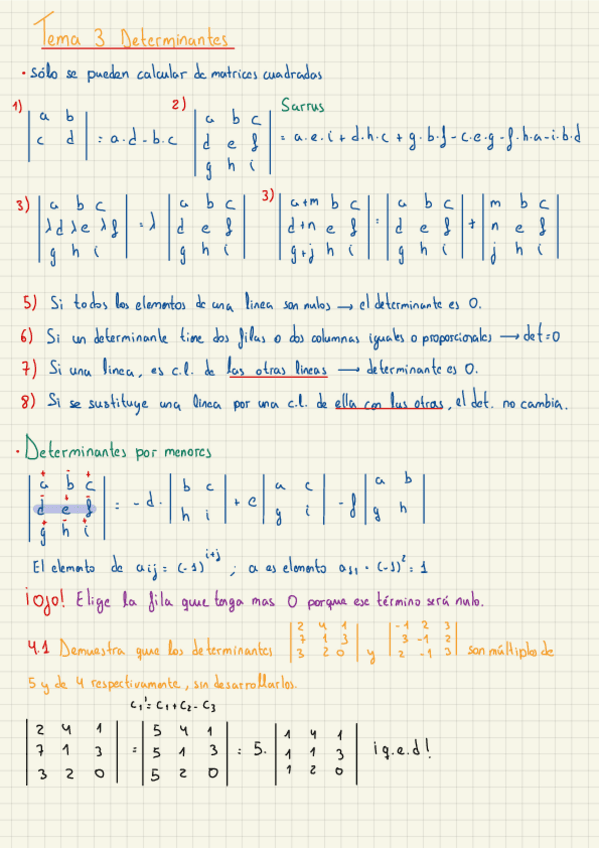 Tema 3 Determinantes
· Sólo se pueden calcular de matrices cuadradas
1) |a b; c d| = a·d - b·c 2) |a b c; d e f; g h i| Sarrus = a·e·i + d·h·c + g·b·f - c·e·g - f·h·a - i·b·d
3) |a b c; λd λe λf; g h i| = λ |a b c; d e f; g h i| 3) |a+m b c; d+n e f; g+j h i| = |a b c; d e f; g h i| + |m b c; n e f; j h i|
5) Si todos los elementos de una linea son nulos → el determinante es 0.
6) Si un determinante tiene dos filas o dos columnas iguales o proporcionales → det=0
7) Si una linea, es c.l. de las otras lineas → determinante es 0.
8) Si se sustituye una linea por una c.l. de ella con las otras, el det. no cambia.
· Determinantes por menores
|a b c; d e f; g h i| = -d· |b c; h i| + e |a c; g i| - f |a b; g h|
+ - +
- + -
+ - +
El elemento de aij = (-1)^i+j ; a es elemento a11 · (-1)^2 = 1
¡Ojo! Elige la fila que tenga mas 0 porque ese término será nulo.
4.1 Demuestra que los determinantes |2 4 1; 7 1 3; 3 2 0| y |-1 2 3; 3 -1 2; 2 -1 3| son múltiplos de
5 y de 4 respectivamente, sin desarrollarlos.
C1' = C1 + C2 - C3
|2 4 1; 7 1 3; 3 2 0| = |5 4 1; 5 1 3; 5 2 0| = 5· |1 4 1; 1 1 3; 1 2 0| ¡q.e.d!